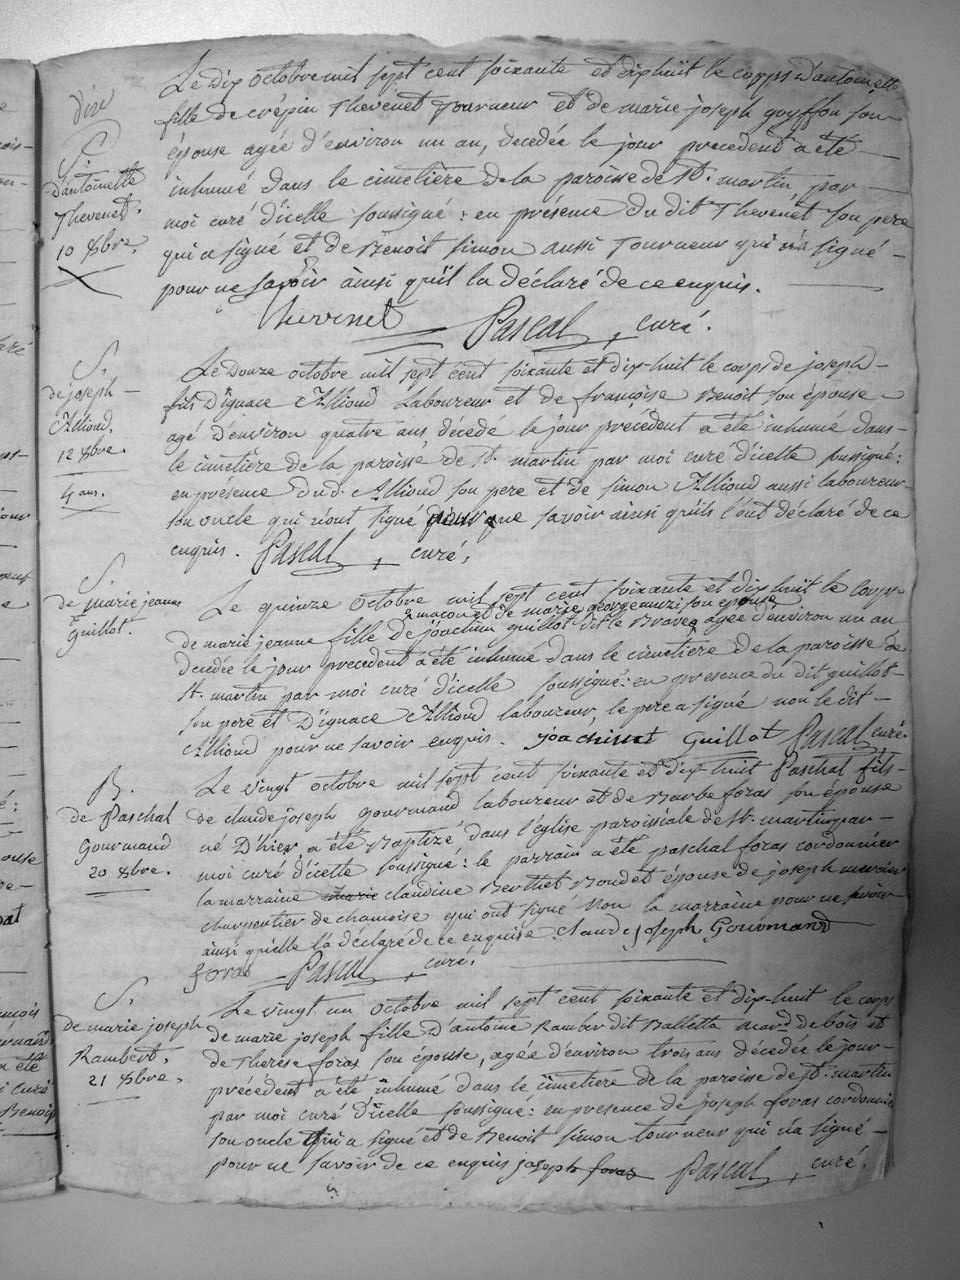 Le dix octobre mil sept cent soixante et dixhuit le corps d'antoinette
fille de crépin Thevenet Tourneur et de marie joseph goyffon son
épouse agée d'environ un an, decedée le jour precedent a été
inhumé dans le cimetiére de la paroisse de St. martin par
moi curé d'icelle soussigné : en présence du dit Thevenet son pere
qui a signé et de Benoit simon aussi Tourneur qui n'a signé
pour ne savoir ainsi qu'il la déclaré de ce enquis.
Thevenet Pascal curé.
S.
D'antoinette
Thevenet.
10 8bre.
Le Douze octobre mil sept cent soixante et dix-huit le corps de joseph
fils D'ignace Allioud Laboureur et de françoise Benoit son épouse
agé d'environ quatre ans, décede le jour precedent a été inhumé dans
le cimetiére de la paroisse de St. martin par moi curé d'icelle soussigné :
en présence dud. Allioud son pere et de simon Allioud aussi laboureur
son oncle qui n'ont signé pour ne savoir ainsi qu'ils l'ont déclaré de ce
enquis. Pascal curé.
S.
de joseph
Allioud.
12 8bre.
4 ans.
Le quinze octobre mil sept cent soixante et dix-huit le corps
maçon et de marie son epouse
de marie jeanne fille de joachim guillot dit le Brave agée d'environ un an
decedée le jour precedent a été inhumé dans le cimetiére de la paroisse de
St. martin par moi curé d'icelle soussigné : en presence du dit guillot
son pere et D'ignace Allioud laboureur, le pere a signé non le dit
Allioud pour ne savoir enquis. Guillot Pascal curé.
S.
de marie jeanne
Guillot.
Le vingt octobre mil sept cent soixante et dix-huit Paschal fils
de claude joseph gourmand laboureur et de Barbe foras son épouse
né D'hier, a été Baptizé dans l'église paroissiale de St. martin par
moi curé d'icelle soussigné : le parrain a été paschal foras cordonnier
la marraine claudine Berthet Bondet épouse de joseph mercier
charpentier de chamoise qui ont signé Non la marraine pour ne savoir
ainsi qu'elle l'a déclaré de ce enquise Claude joseph Gourmand
foras Pascal curé.
B.
de Paschal
Gourmand
20 8bre.
Le vingt un octobre mil sept cent soixante et dix-huit le corps
de marie joseph fille D'antoine Rambert dit Balletta mard de bois et
de Thérèse foras son épouse, agée d'environ trois ans décedée le jour
précédent a été inhumé dans le cimetiére de la paroisse de St. martin
par moi curé d'icelle soussigné : en presence de joseph foras cordonnier
son oncle qui a signé et de Benoit simon tourneur qui n'a signé
pour ne savoir de ce enquis joseph foras Pascal curé.
S.
de marie joseph
Rambert.
21 8bre.